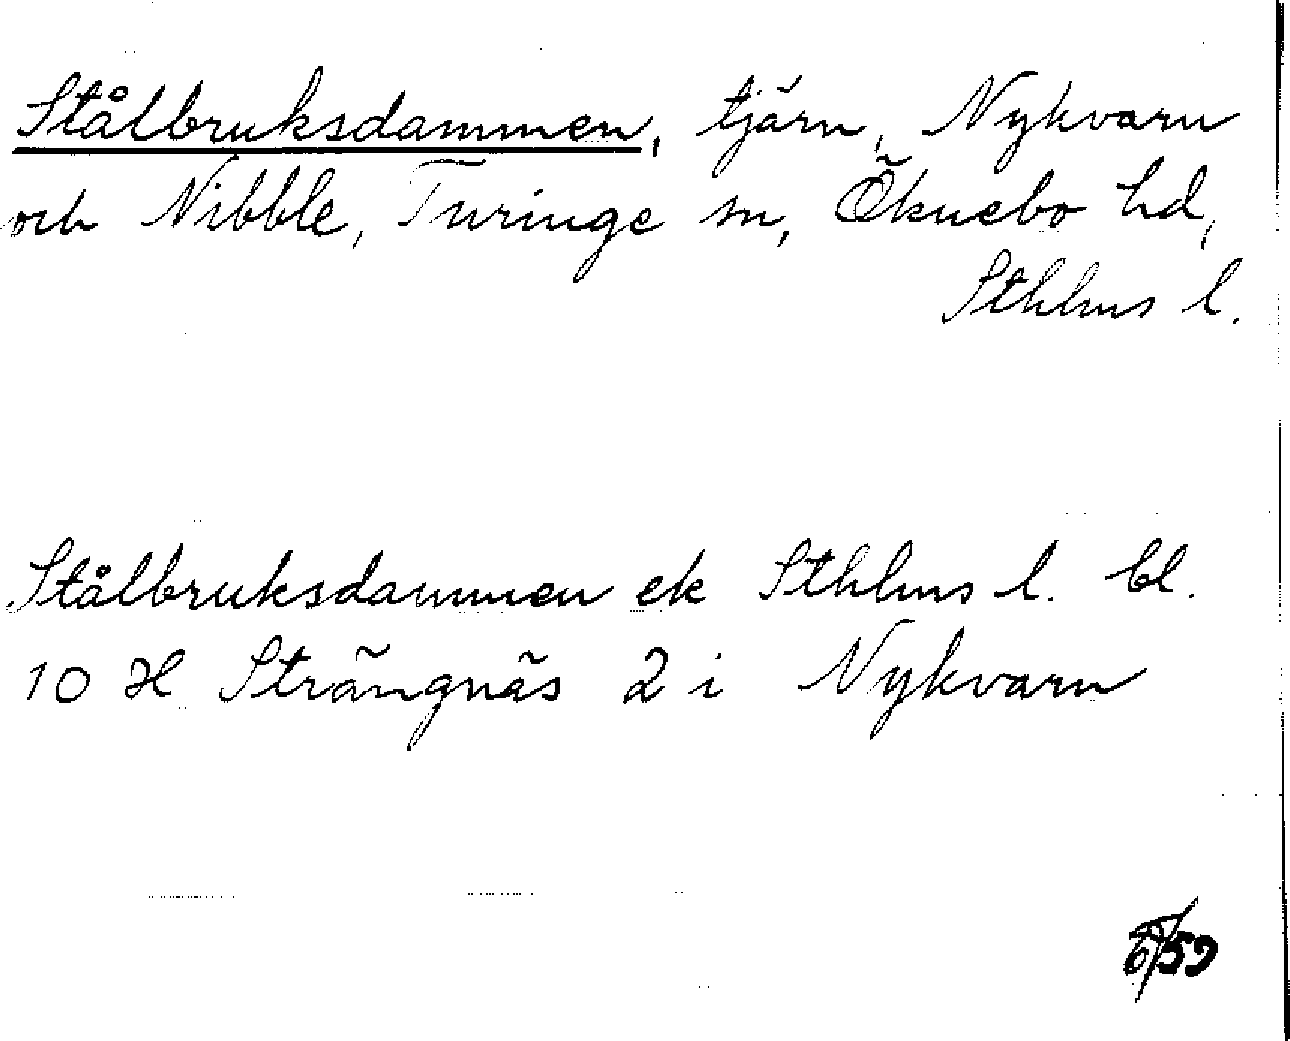 Stålbruksdammen, tjärn, Nykvarn
och Nibble, Turinge sn, Öknebo hd,
Sthlms l.
Stålbruksdammen ek Sthlms l. bl.
10 H Strängnäs 2 i Nykvarn